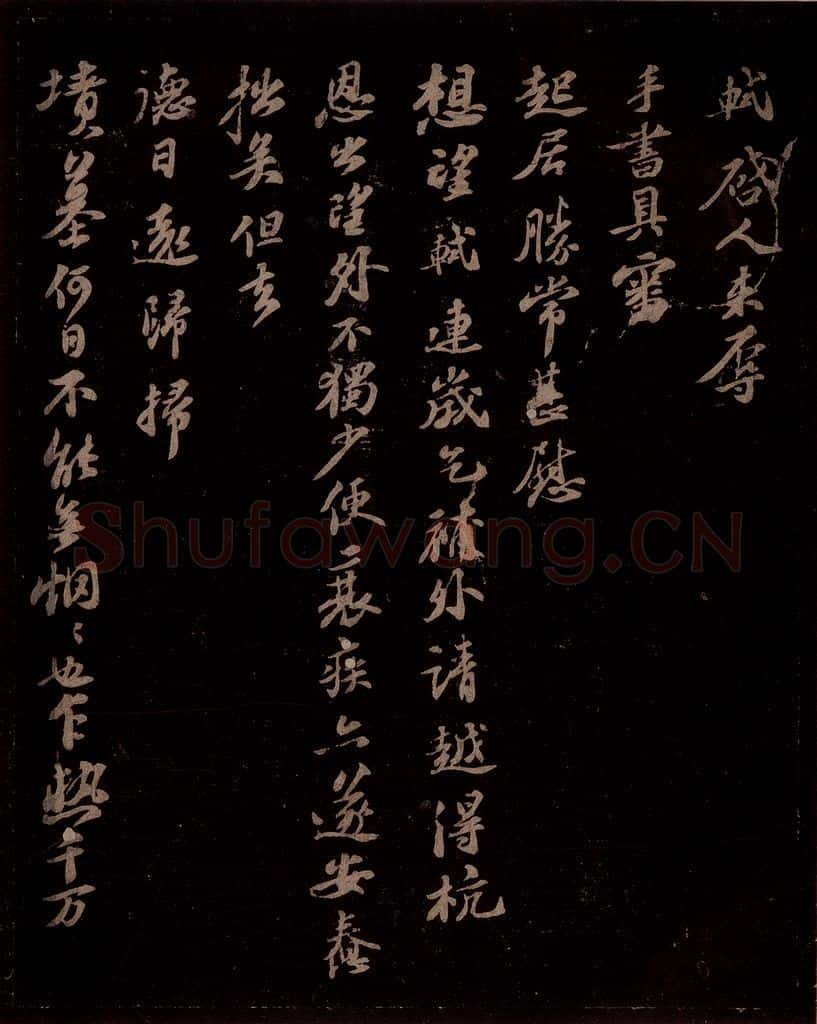 軾啓人来辱
手書具審
起居勝常甚慰
想望軾連歲乞補外請越得杭
恩出望外不獨少便衰疾亦遂安養
拙矣但去
德日遠歸掃
墳墓何日不能無惘〻也乍熱千万
Shufawang.CN